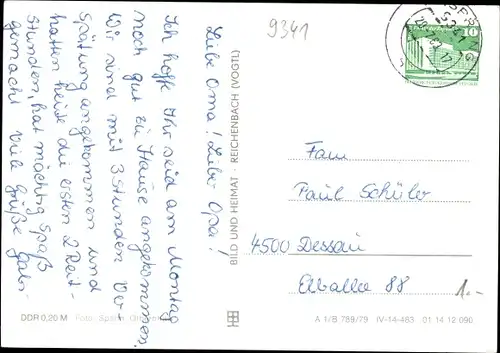 9341
Liebe Oma! Liebe Opa!
Ich hoffe Ihr seid am Montag
noch gut zu Hause angekommen.
Wir sind mit 3 Stunden Ver-
spätung angekommen und
hatten heute die ersten 2 Reit-
stunden, hat mächtig Spaß
gemacht. Viele Grüße Gabi.
10
BILD UND HEIMAT · REICHENBACH (VOGTL)
Fam
Paul Schüler
4500 Dessau
Elballee 88
1.-
DDR 0,20 M Foto:
A 1/B 789/79 IV-14-483 01 14 12 090